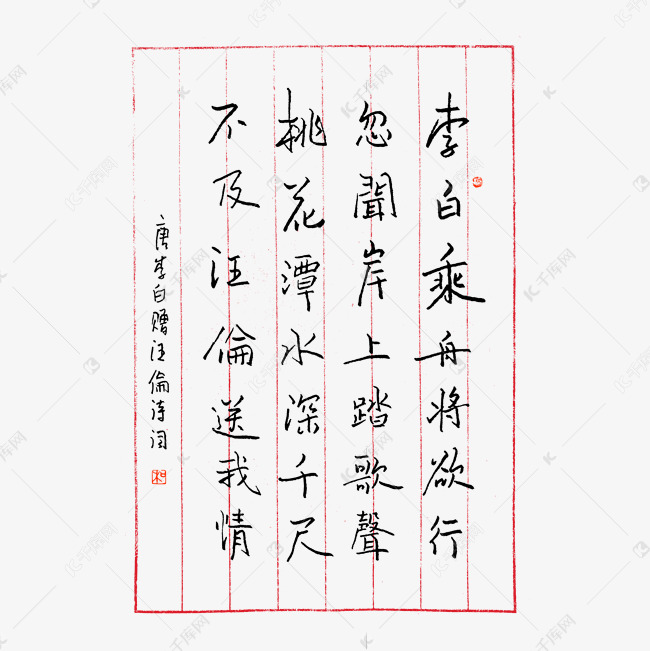 李白乘舟将欲行
忽聞岸上踏歌聲
桃花潭水深千尺
不及汪倫送我情
唐李白赠汪倫诗
千库网